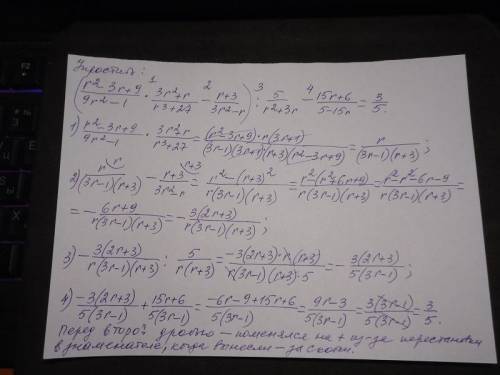 Упростить:
((r²-3r+9)/(9r²-1) · (3r²+r)/(r³+27) - (r+3)/(3r²-r)) : 5/(r²+3r) - (15r+6)/(5-15r) = 3/5.
1) (r²-3r+9)/(9r²-1) · (3r²+r)/(r³+27) = ((r²-3r+9)·r(3r+1))/((3r-1)(3r+1)(r+3)(r²-3r+9)) = r/((3r-1)(r+3));
2) r/((3r-1)(r+3)) - (r+3)/(3r²-r) = (r²-(r+3)²)/(r(3r-1)(r+3)) = (r²-(r²+6r+9))/(r(3r-1)(r+3)) = (r²-r²-6r-9)/(r(3r-1)(r+3)) =
= -(6r+9)/(r(3r-1)(r+3)) = -3(2r+3)/(r(3r-1)(r+3));
3) -3(2r+3)/(r(3r-1)(r+3)) : 5/(r(r+3)) = (-3(2r+3)·r(r+3))/(r(3r-1)(r+3)·5) = -3(2r+3)/(5(3r-1));
4) -3(2r+3)/(5(3r-1)) + (15r+6)/(5(3r-1)) = (-6r-9+15r+6)/(5(3r-1)) = (9r-3)/(5(3r-1)) = 3(3r-1)/(5(3r-1)) = 3/5.
Перед второй дробью - поменялся на + из-за перестановки
в знаменателе, когда вынесли - за скобки.